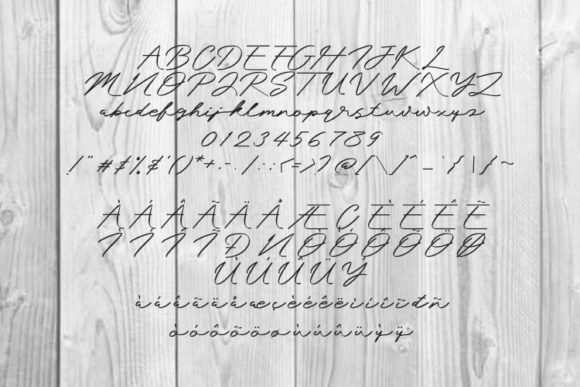 ABCDEFGHIJKL
MNOPQRSTUVWXYZ
abcdefghijklmnopqrstuvwxyz
0123456789
!"#$%&'()*+,-./:;<=>?@[\]^_`{|}~
ÀÁÂÃÄÅÆÇÈÉÊË
ÌÍÎÏÐÑÒÓÔÕÖØ
ÙÚÛÜÝ
àáâãäåæçèéêëìíîïðñ
òóôõöøùúûüýÿ